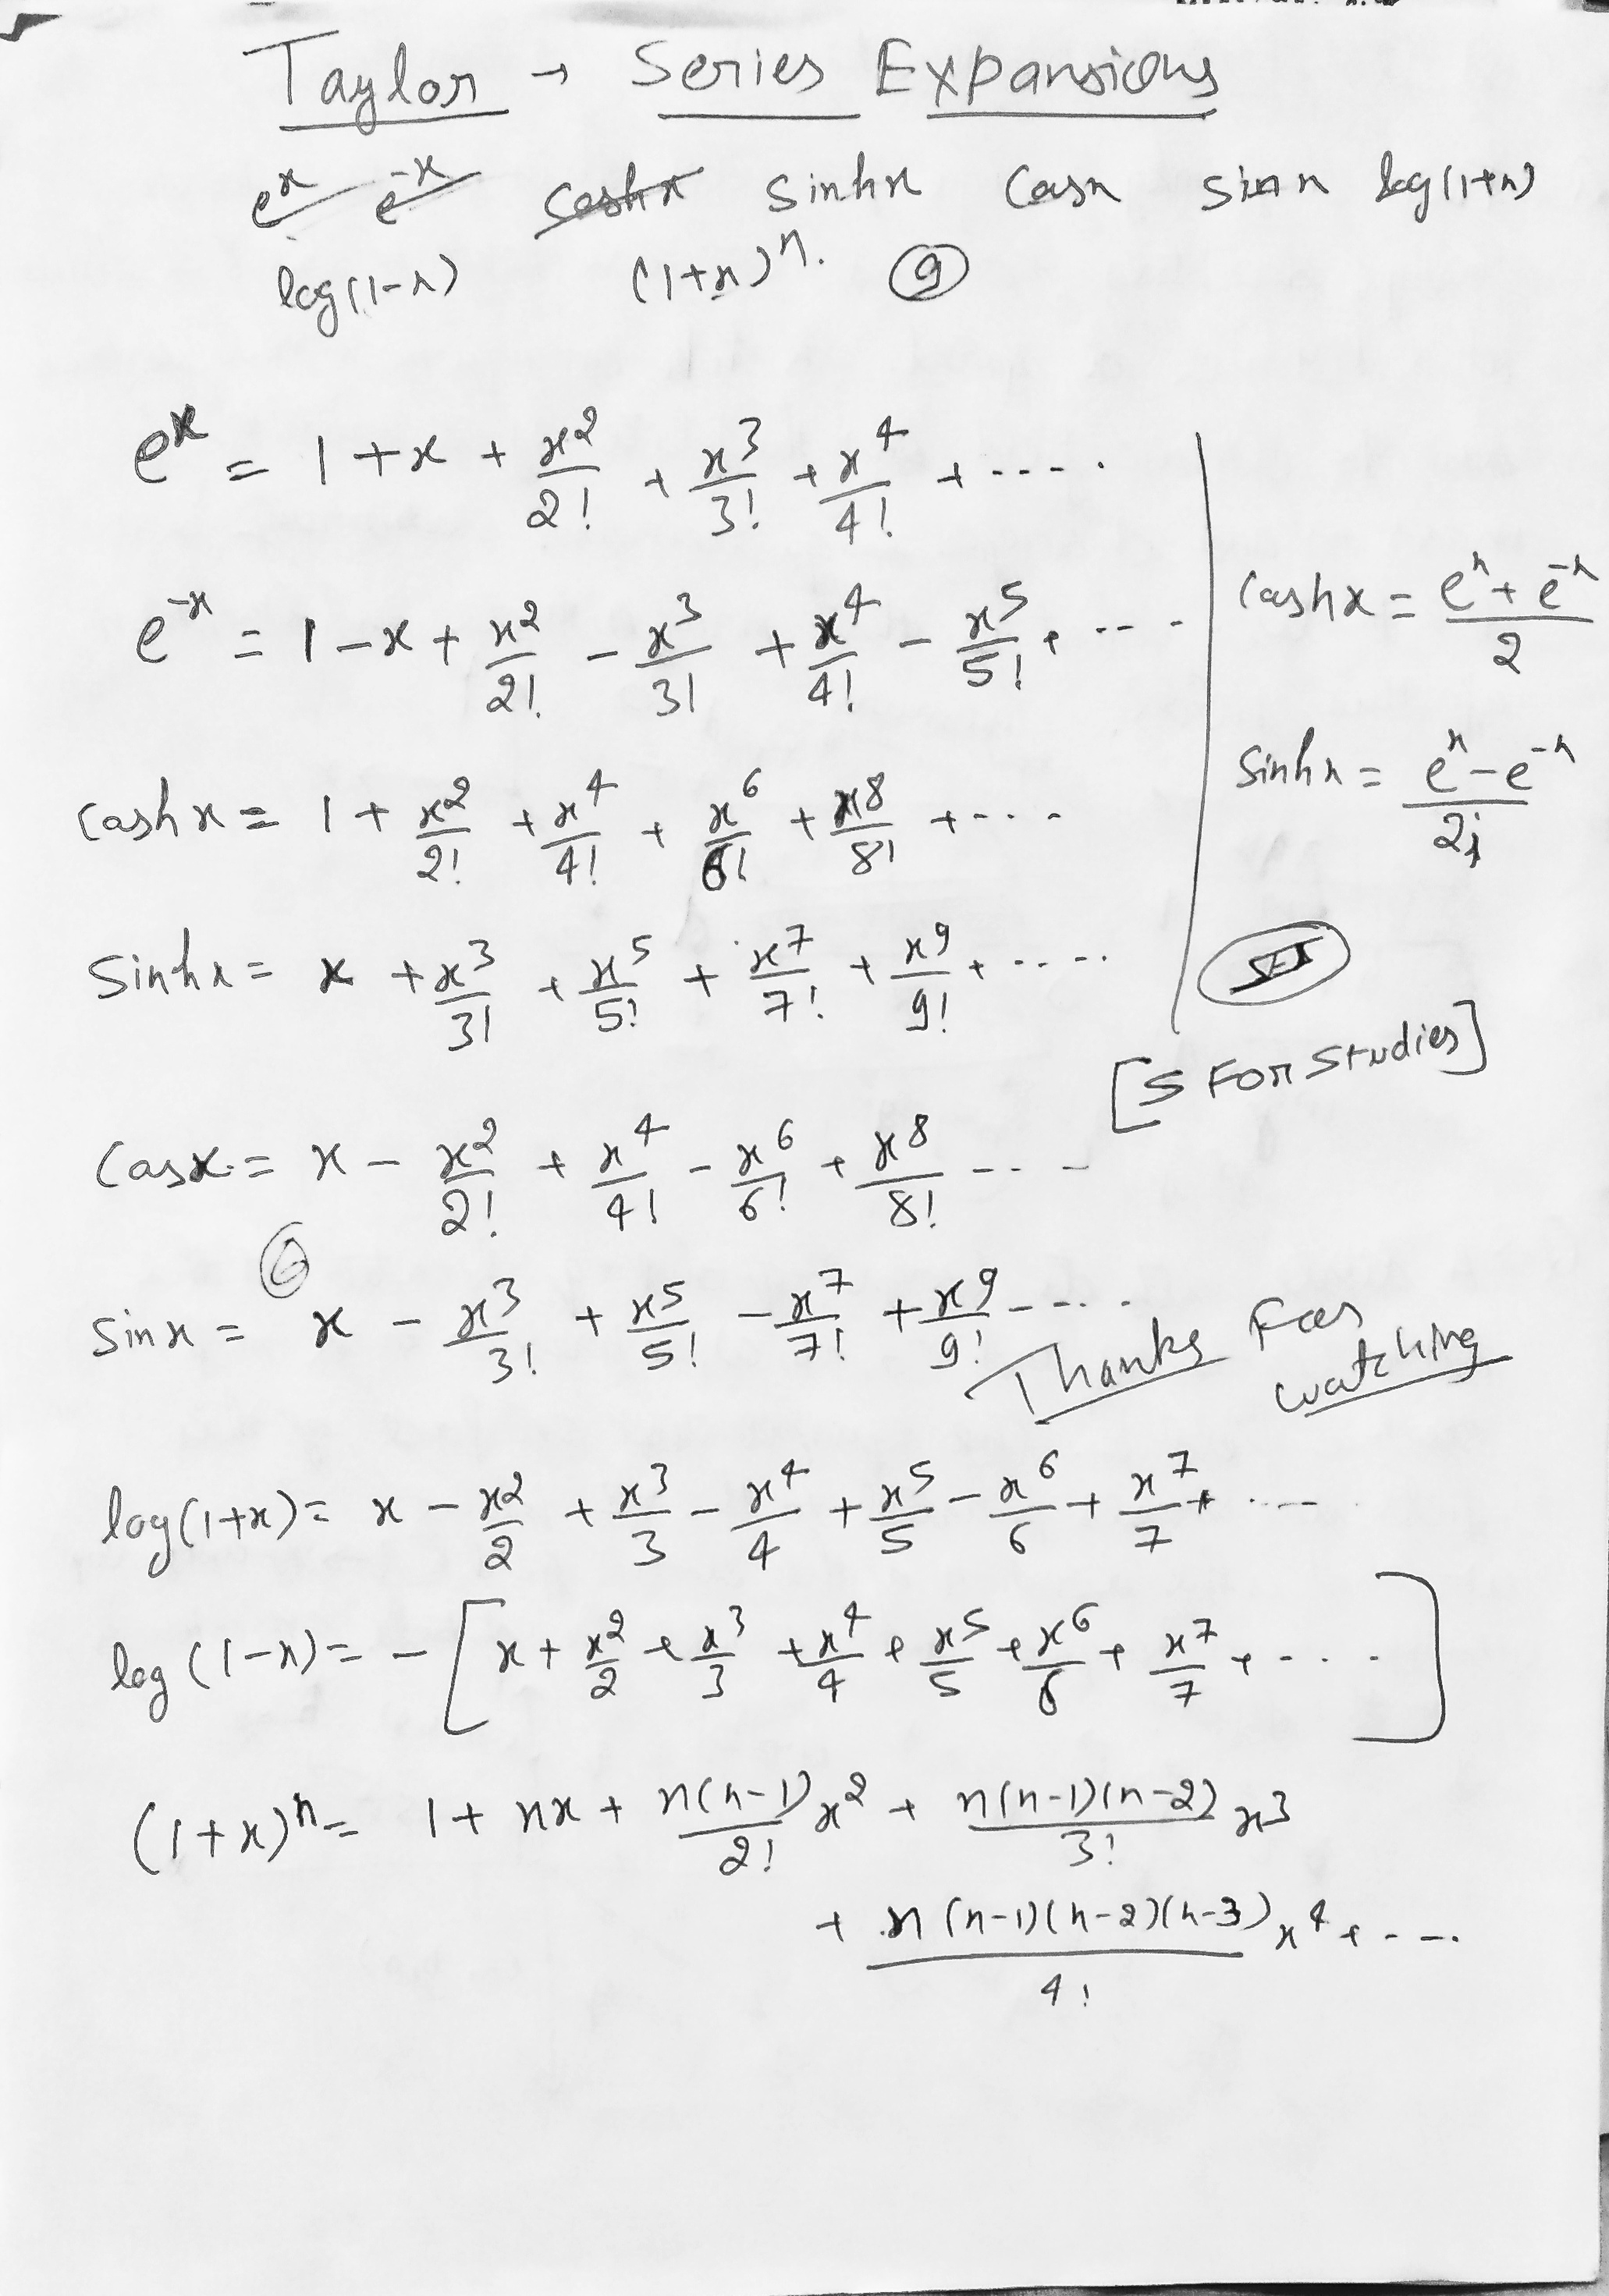 Taylor → Series Expansions
e^x e^-x coshx sinhx cosx sinx log(1+x)
log(1-x) (1+x)^n. 9
e^x = 1 + x + x^2/2! + x^3/3! + x^4/4! + .....
e^-x = 1 - x + x^2/2! - x^3/3! + x^4/4! - x^5/5! + ....
coshx = (e^x + e^-x)/2
coshx = 1 + x^2/2! + x^4/4! + x^6/6! + x^8/8! + ....
sinhx = (e^x - e^-x)/2i
sinhx = x + x^3/3! + x^5/5! + x^7/7! + x^9/9! + .....
[S FOR Studies]
cosx = x - x^2/2! + x^4/4! - x^6/6! + x^8/8! ....
6
sinx = x - x^3/3! + x^5/5! - x^7/7! + x^9/9! - ....
Thanks For
watching
log(1+x) = x - x^2/2 + x^3/3 - x^4/4 + x^5/5 - x^6/6 + x^7/7 + ....
log(1-x) = - [x + x^2/2 + x^3/3 + x^4/4 + x^5/5 + x^6/6 + x^7/7 + ....]
(1+x)^n = 1 + nx + n(n-1)/2! x^2 + n(n-1)(n-2)/3! x^3
+ n(n-1)(n-2)(n-3)/4! x^4 + ....